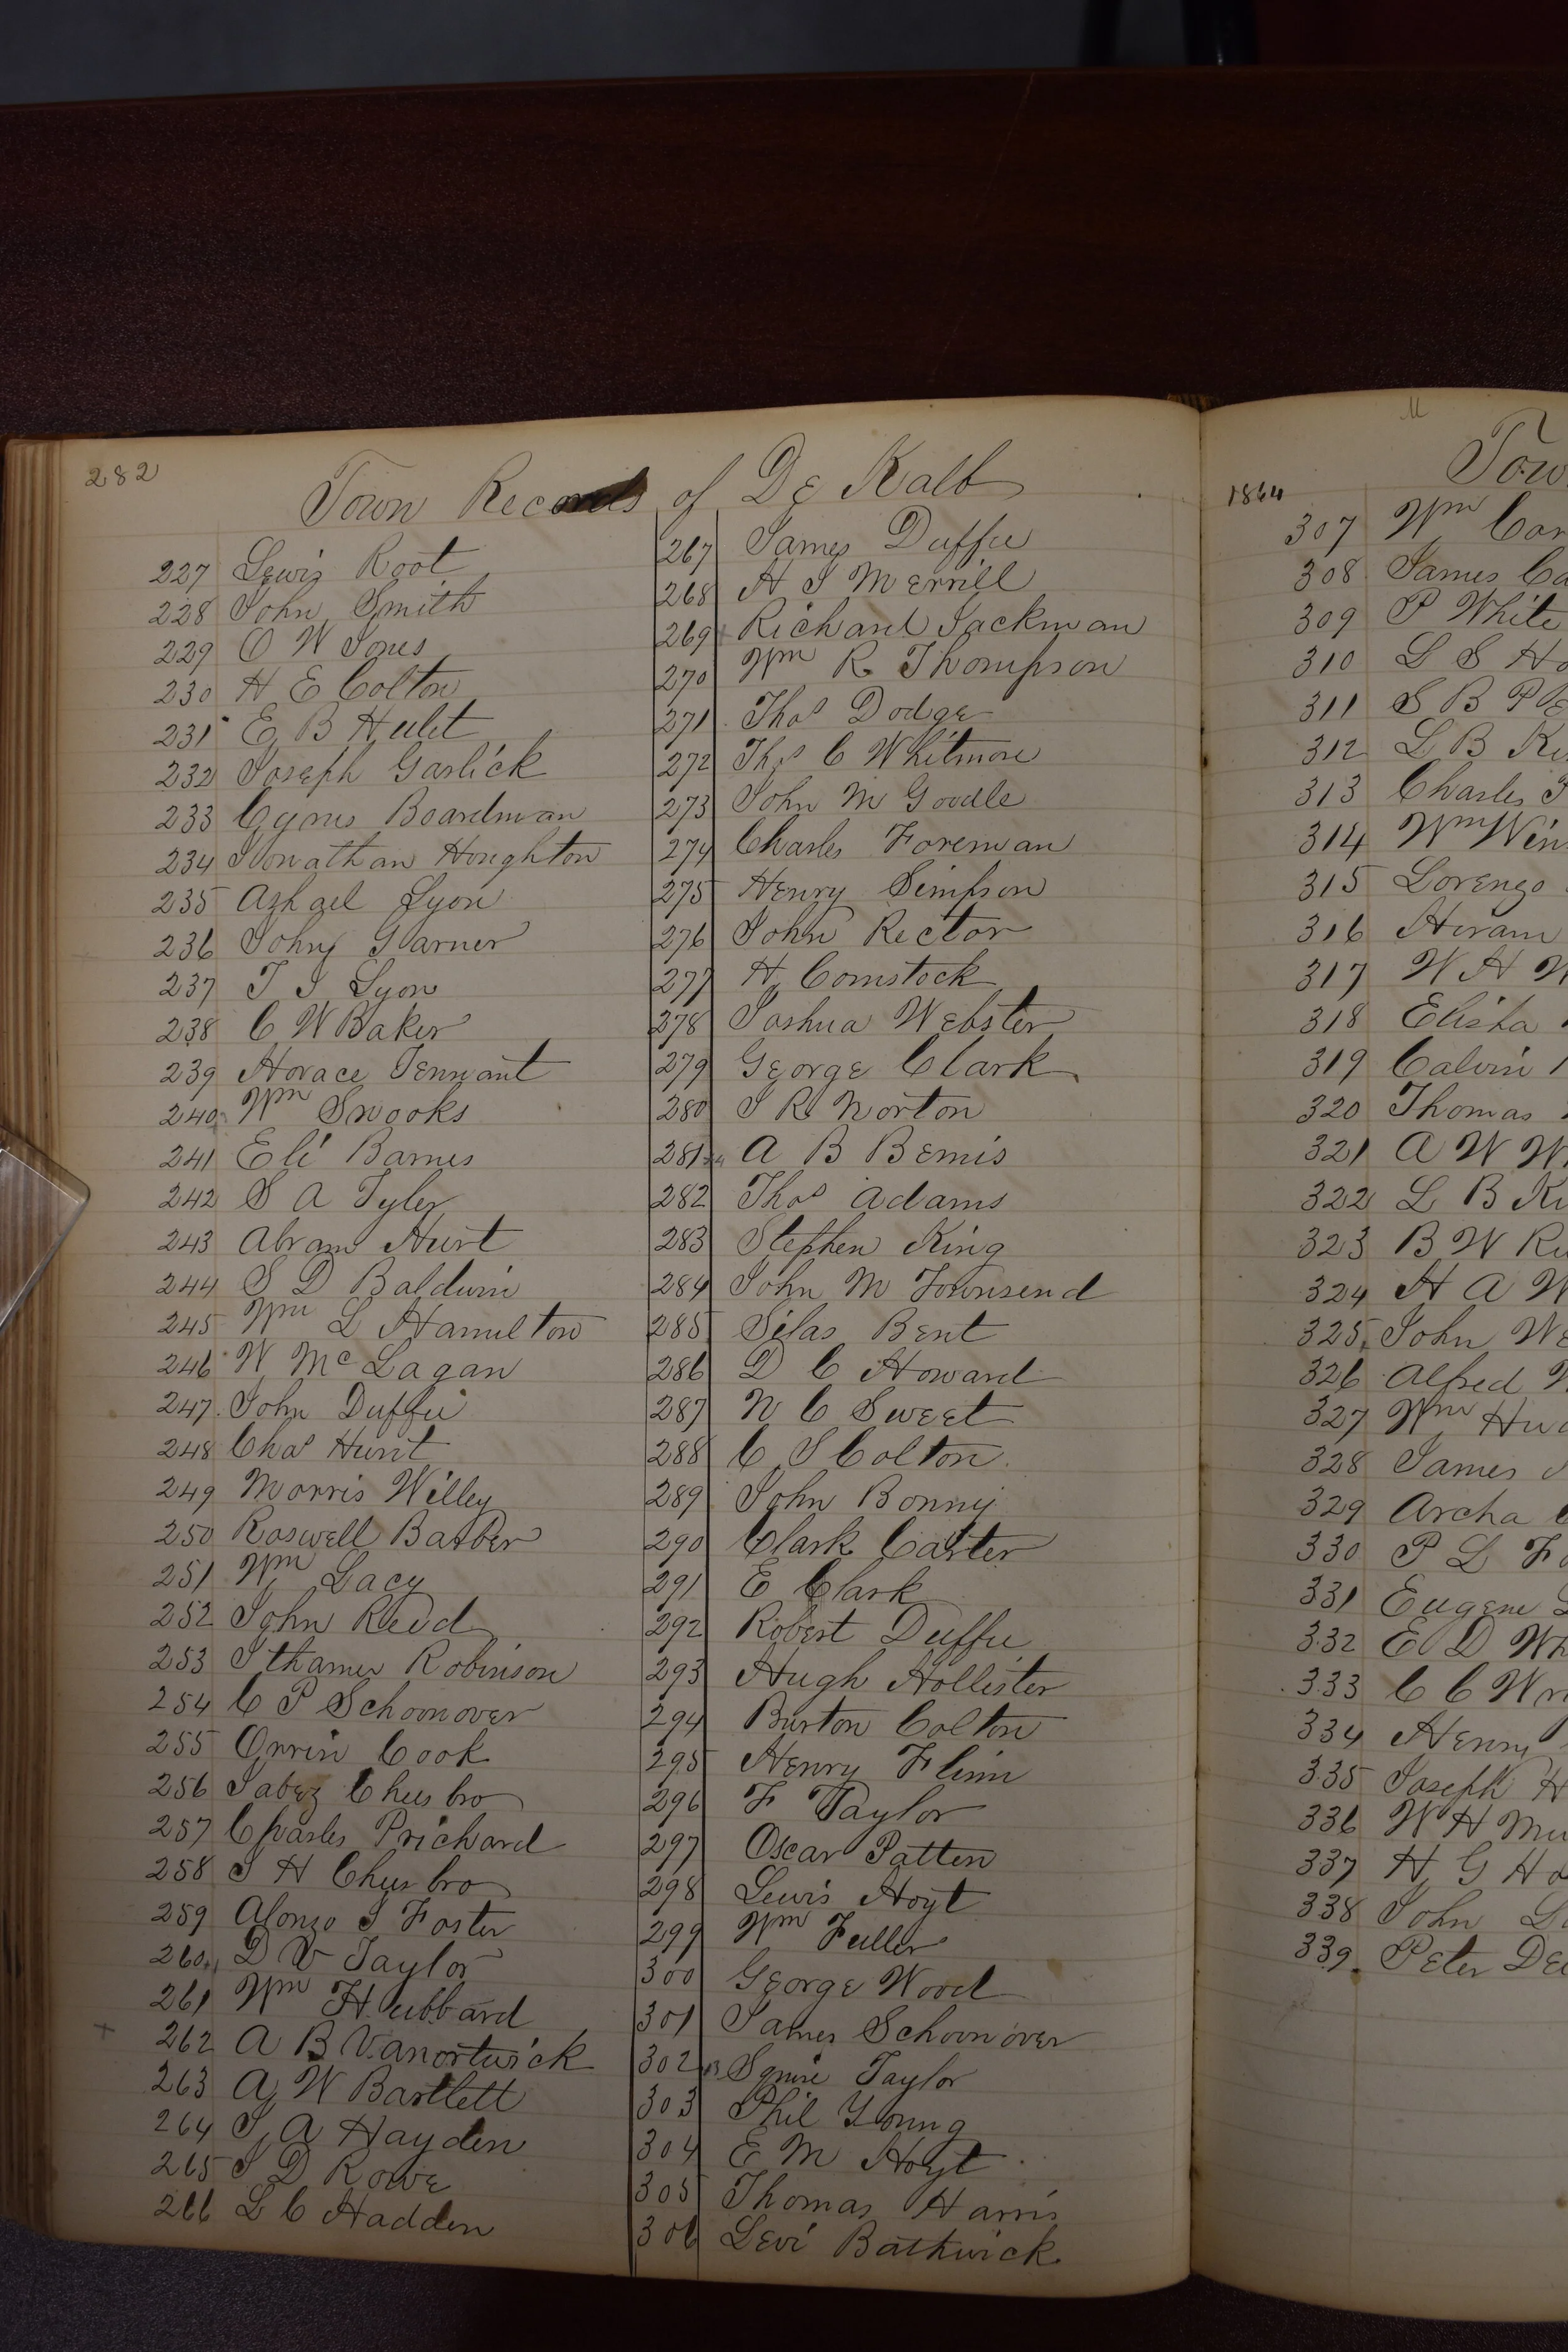 282
Town Records of De Kalb
227 Lewis Root
228 John Smith
229 O W Jones
230 H E Colton
231 E B Hulet
232 Joseph Garlick
233 Cyrus Boardman
234 Jonathan Houghton
235 Ashael Lyon
236 John Garner
237 T J Lyon
238 C W Baker
239 Horace Tennant
240 Wm Snooks
241 Eli Barnes
242 S A Tyler
243 Abram Hurt
244 S D Baldwin
245 Wm L Hamilton
246 W Mc Lagan
247 John Duffie
248 Chas Hunt
249 Morris Willey
250 Roswell Barber
251 Wm Lacy
252 John Redd
253 Ithamer Robinson
254 C P Schoonover
255 Orrin Cook
256 Jabez Cheesbro
257 Charles Prichard
258 J H Cheesbro
259 Alonzo J Foster
260 D V Taylor
261 Wm Hubbard
262 A B Vanortwick
263 A W Bartlett
264 J A Hayden
265 J D Rowe
266 L C Hadden
267 James Duffee
268 H J Merrill
269 Richard Jackman
270 Wm R Thompson
271 Thos Dodge
272 Thos C Whitmore
273 John M Goodle
274 Charles Foreman
275 Henry Simpson
276 John Rector
277 H Comstock
278 Joshua Webster
279 George Clark
280 J R Norton
281 A B Bemis
282 Thos Adams
283 Stephen King
284 John M Townsend
285 Silas Bent
286 D C Howard
287 N C Sweet
288 C S Colton
289 John Bonny
290 Clark Carter
291 E Clark
292 Robert Duffee
293 Hugh Hollister
294 Burton Colton
295 Henry Flinn
296 F Taylor
297 Oscar Patten
298 Lewis Hoyt
299 Wm Fuller
300 George Wood
301 James Schoonover
302 Squire Taylor
303 Phil Young
304 E M Hoyt
305 Thomas Harris
306 Levi Bathwick
1864
307 Wm
308 James
309 P White
310 L S
311 S B
312 L B
313 Charles
314 Wm
315 Lorenzo
316 Hiram
317 W H
318 Elisha
319 Calvin
320 Thomas
321 A W
322 L B
323 B W
324 H A
325 John
326 Alfred
327 Wm
328 James
329 Archa
330 P L
331 Eugene
332 E D
333 C C
334 Henry
335 Joseph
336 W H
337 H G
338 John
339 Peter